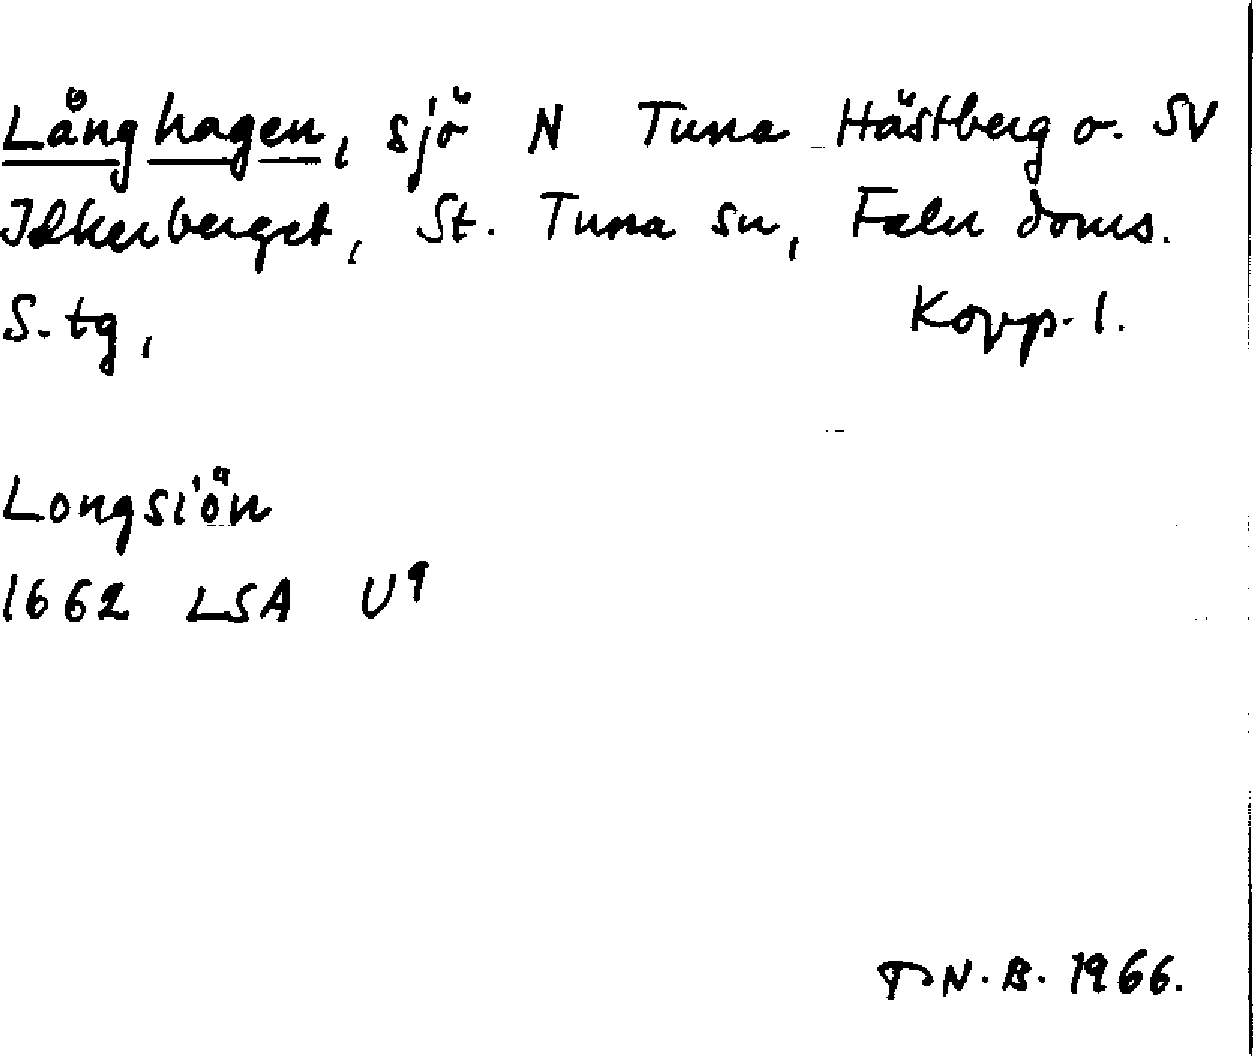 Långhagen, sjö N Tuna Hästberg o. SV
Idkerberget, St. Tuna sn, Falu doms.
S. tg, Kopp. l.
Longsiön
1662 LSA U9
N.B. 1966.